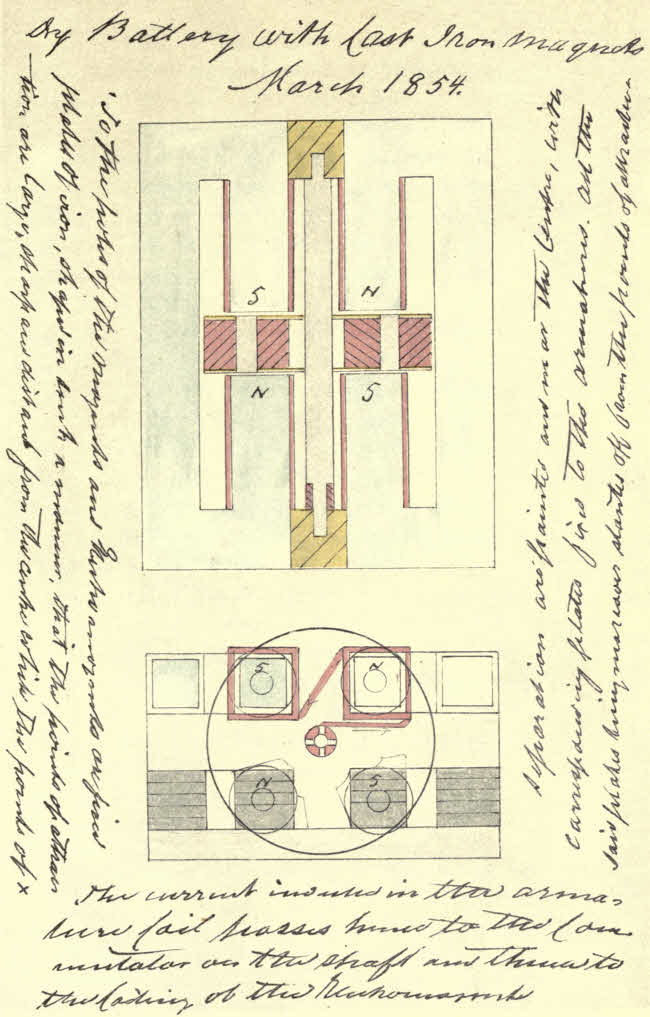 Dy Battery with Cast Iron magnets
March 1854.
To the poles of the magnets and Electromagnets are fixed
plates of iron, shaped in such a manner, that the points of attrac
-tion are large, sharp and distant from the centre while the points of x
separation are pointed and near the Centre, with
corresponding plates fixed to the armatures. All the
said plates being off from the points of attraction
S N
N S
S N
N S
The current induced in the arma-
ture Coil passes hence to the Com
mutator on the shaft and thence to
the of the Electromagnets